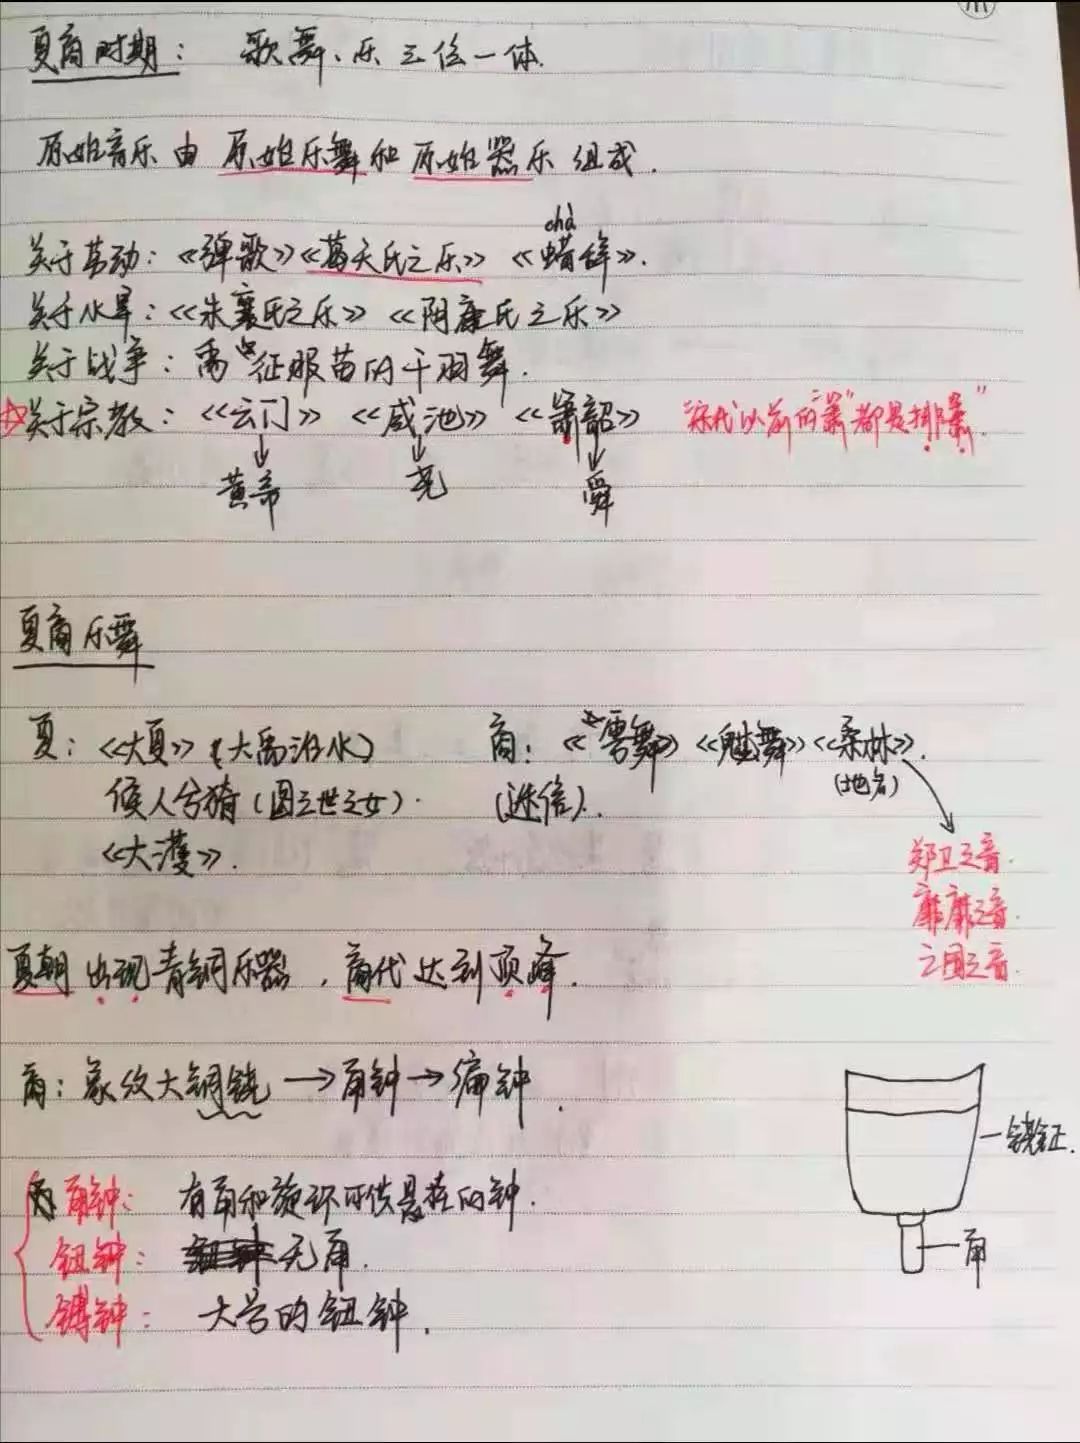 夏商时期： 歌舞、乐三位一体.
原始音乐由原始乐舞和原始器乐组成.
chà
关于劳动：《弹歌》《葛天氏之乐》《蜡辞》.
关于水旱：《朱襄氏之乐》《阴康氏之乐》
关于战争：禹征服苗的干羽舞.
关于宗教：《云门》《咸池》《箫韶》 "宋代以前的"箫"都是排箫."
黄帝 尧 舜
夏商乐舞
夏：《大夏》(大禹治水) 商：《雩舞》《魌舞》《桑林》.
候人兮猗 (迷信). (地名)
《大濩》. 郑卫之音.
靡靡之音.
亡国之音.
夏朝出现青铜乐器，商代达到顶峰.
商：象纹大铜铙→甬钟→编钟.
甬钟： 有甬和旋环可供悬挂的钟.
钮钟： 无甬.
镈钟： 大号的钮钟.
甬